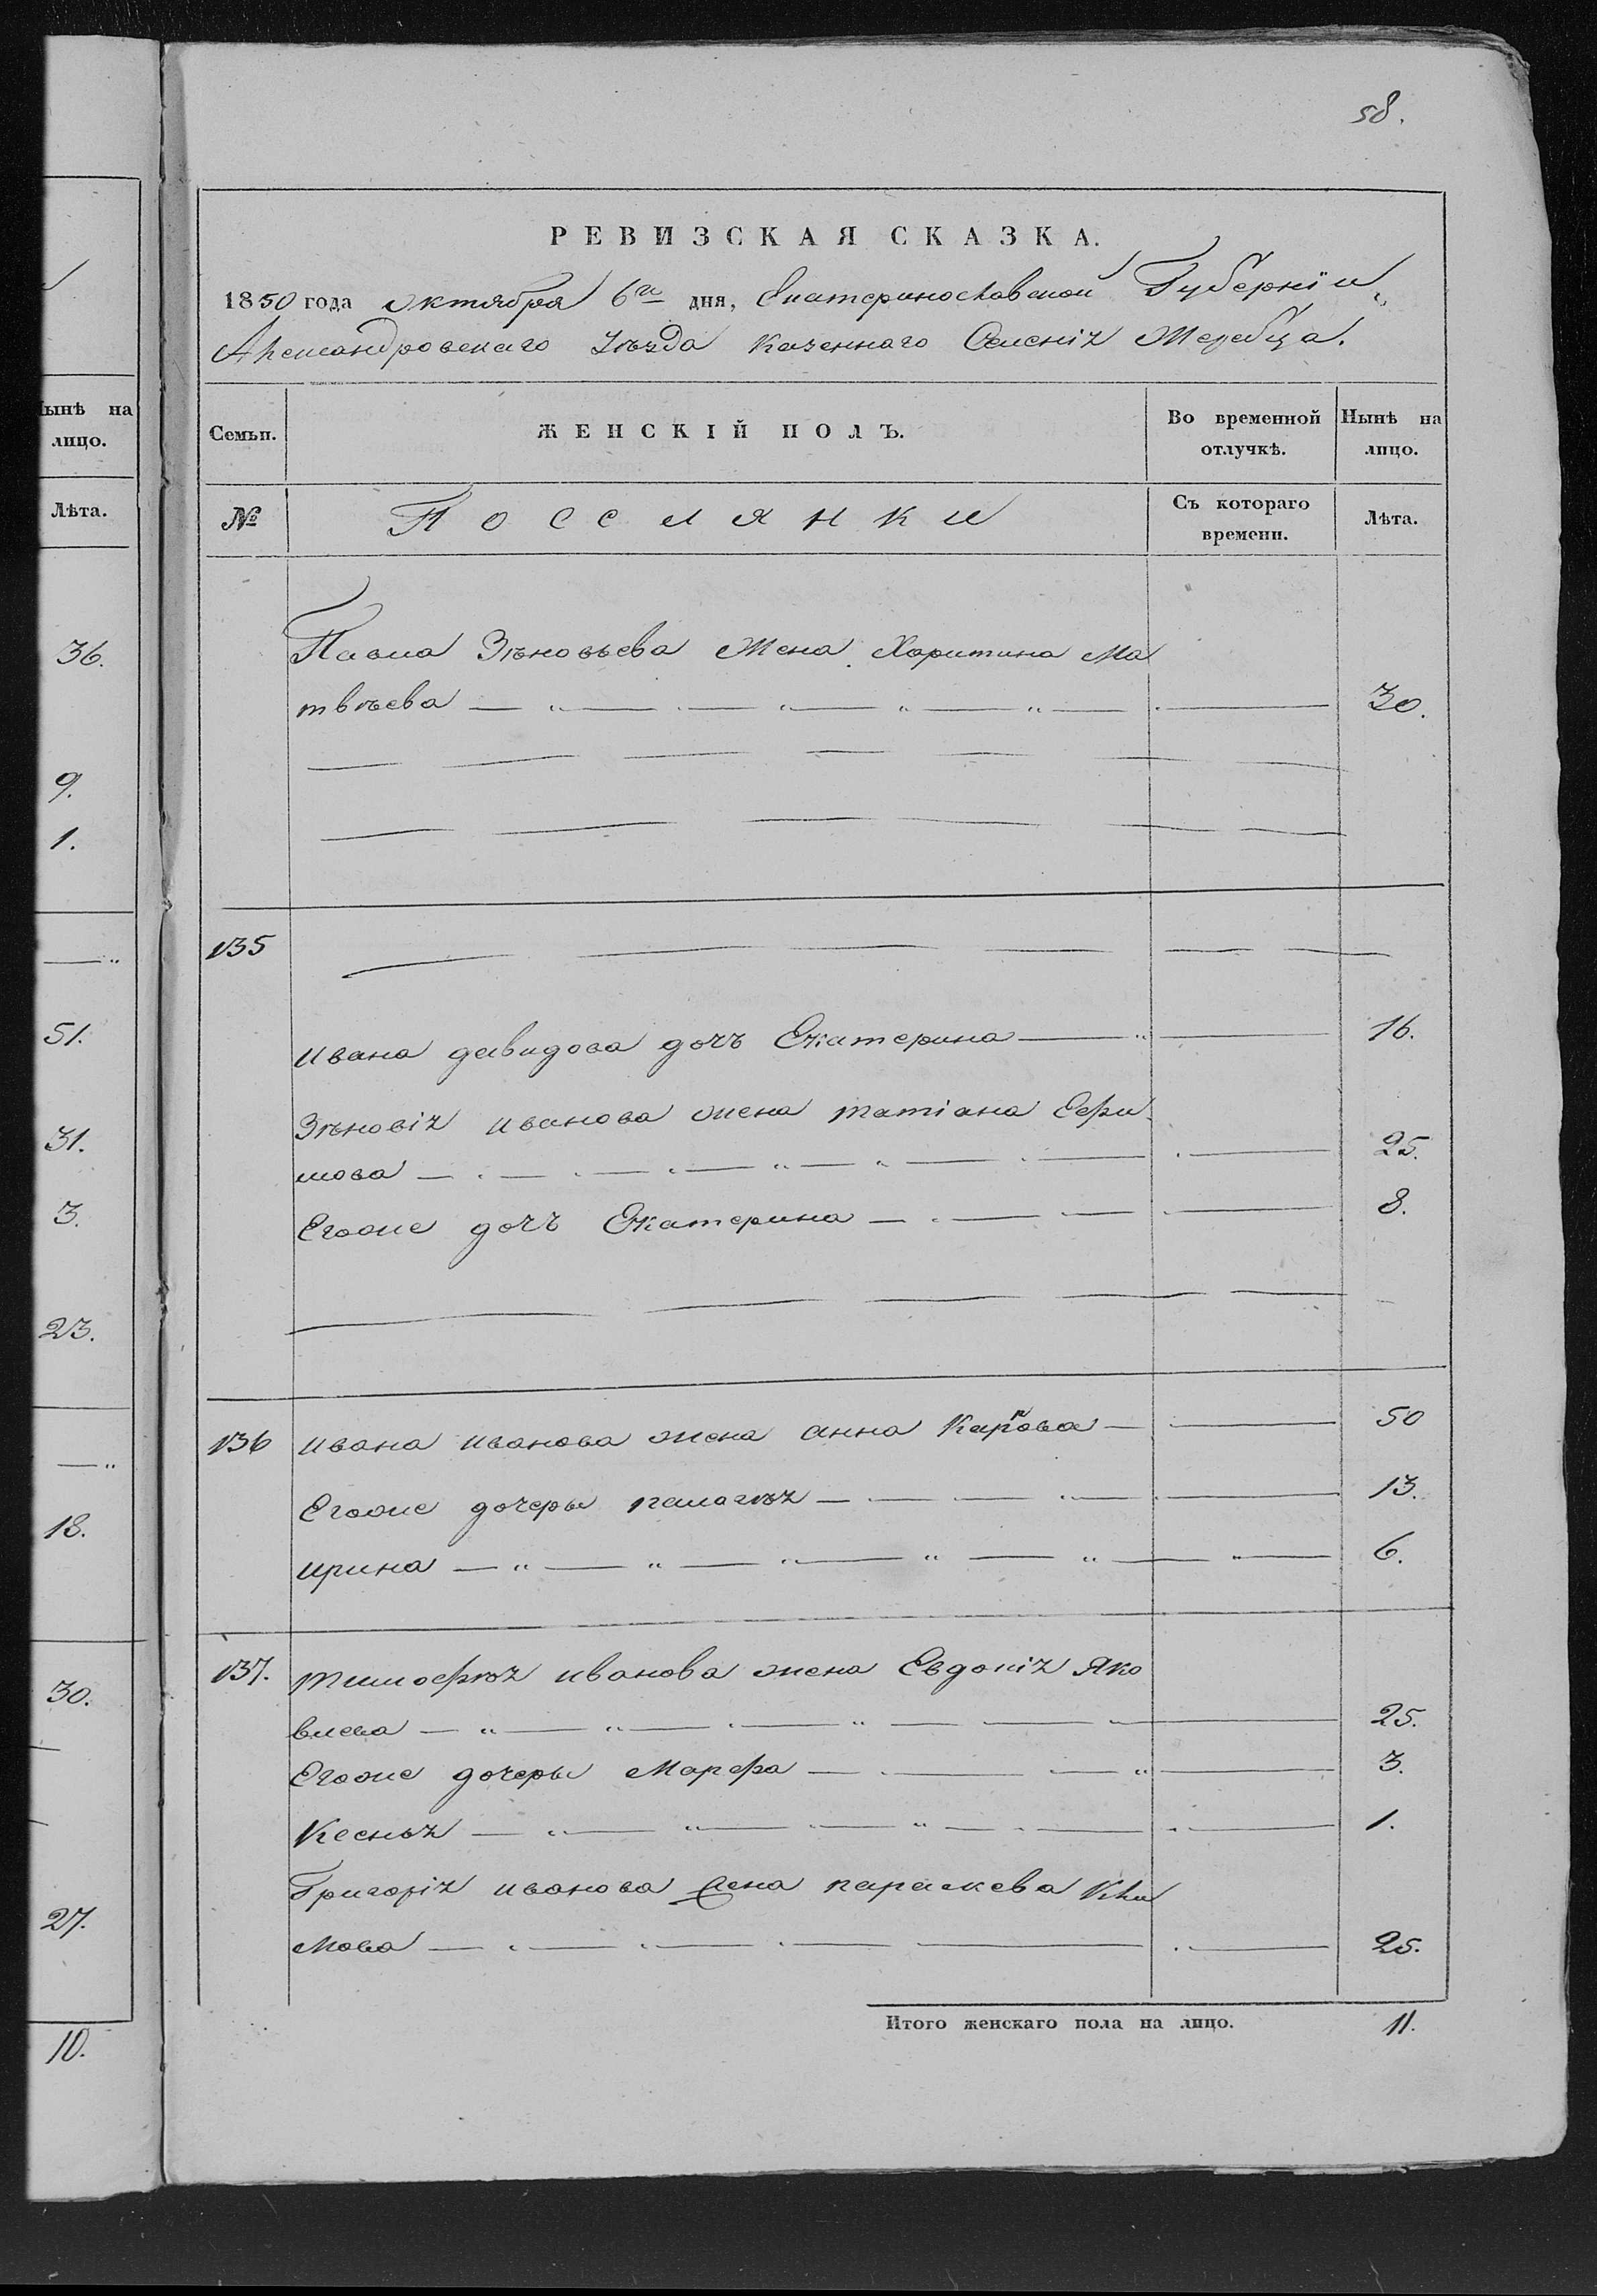 58.
РЕВИЗСКАЯ СКАЗКА.
1850 года октября 6го дня, Екатеринославской Губерніи,
Александровскаго Уѣзда казеннаго Селенія Жеребца.
Семьи.
ЖЕНСКІЙ ПОЛЪ.
Во временной отлучкѣ.
Нынѣ на лицо.
№
Поселянки
Съ котораго времени.
Лѣта.
Павла Зѣновьева Жена Харитина Ма
твѣева 30.
135
Ивана давидова дочъ Екатерина 16.
Зѣновія иванова жена татіана Ефи
мова 25.
Егоже дочъ Екатерина 8.
136 ивана иванова жена анна Карпова 50
Егоже дочеры пелагѣя 13.
ирина 6.
137. тимофѣя иванова жена Евдокія Яко
влева 25.
Егоже дочеры Марфа 3.
Ксенья 1.
Григорія иванова жена параскева Кли
мова 25.
Итого женскаго пола на лицо. 11.
ынѣ на
лицо.
Лѣта.
36.
9.
1.
51.
31.
3.
23.
18.
30.
27.
10.